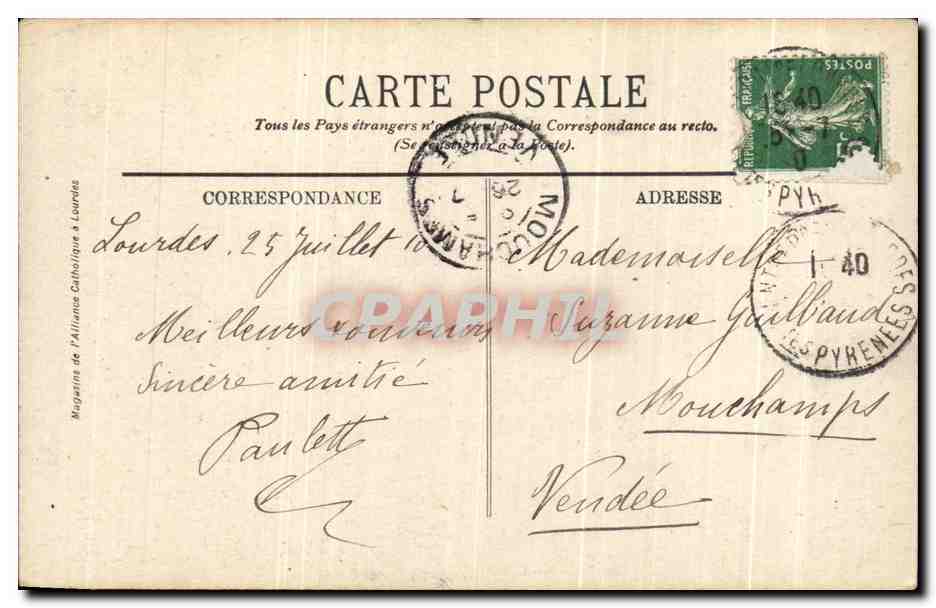 CARTE POSTALE
Tous les Pays étrangers n'acceptent pas la Correspondance au recto.
(Se renseigner à la Poste).
CORRESPONDANCE
Lourdes 25 Juillet 10
Meilleurs souvenirs
Sincère amitié
Paulett
ADRESSE
Mademoiselle
Suzanne Guilbaud
Mouchamps
Vendée
Magasins de l'Alliance Catholique à Lourdes
POSTES
REPUBLIQUE FRANÇAISE
MOUCHAMPS
VENDEE
26
7
40
PYR
40
TES PYRENEES
CPAPHIL